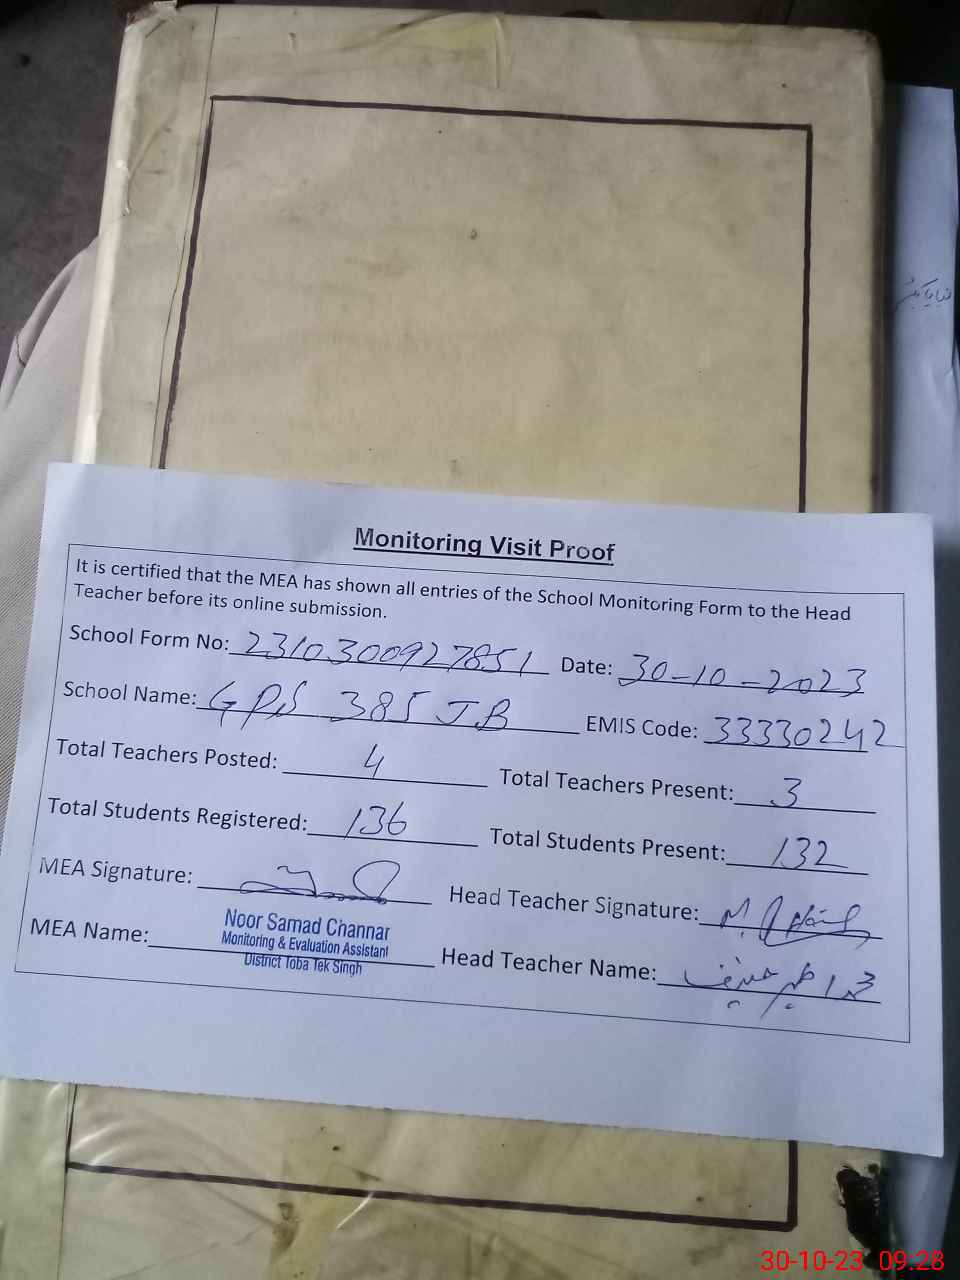 Monitoring Visit Proof
It is certified that the MEA has shown all entries of the School Monitoring Form to the Head
Teacher before its online submission.
School Form No: 2310300927851 Date: 30-10-2023
School Name: GPS 385 JB EMIS Code: 33330242
Total Teachers Posted: 4 Total Teachers Present: 3
Total Students Registered: 136 Total Students Present: 132
MEA Signature: Head Teacher Signature:
MEA Name: Noor Samad Channar
Monitoring & Evaluation Assistant
District Toba Tek Singh
Head Teacher Name:
30-10-23 09:28